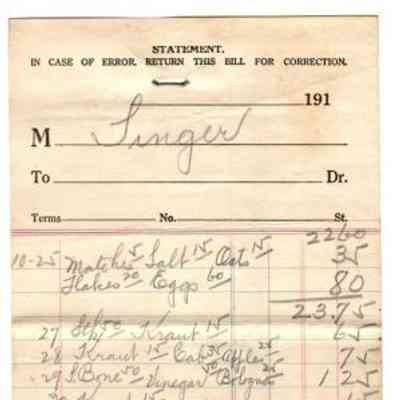 STATEMENT.
IN CASE OF ERROR, RETURN THIS BILL FOR CORRECTION.
191
M Singer
To Dr.
Terms No. St.
2260
10-25 Matches 5 Salt 15 Oats 15 35
Flakes 20 Eggs 60 80
23.75
27 50 Kraut 15 65
28 Kraut 15 Cab 35 Apples 25 75
29 S. Bone 50 Vinegar 50 Bologna 25 1 25
15